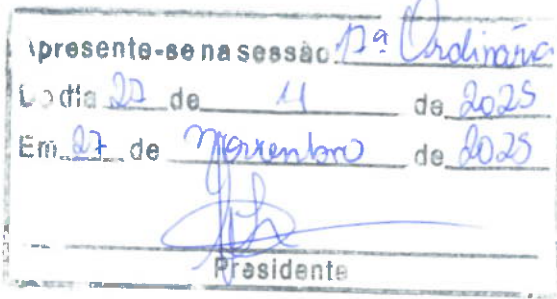 apresente-se na sessão 12ª Ordinária
Do dia 27 de 11 de 2025
Em 27 de Novembro de 2025
Presidente